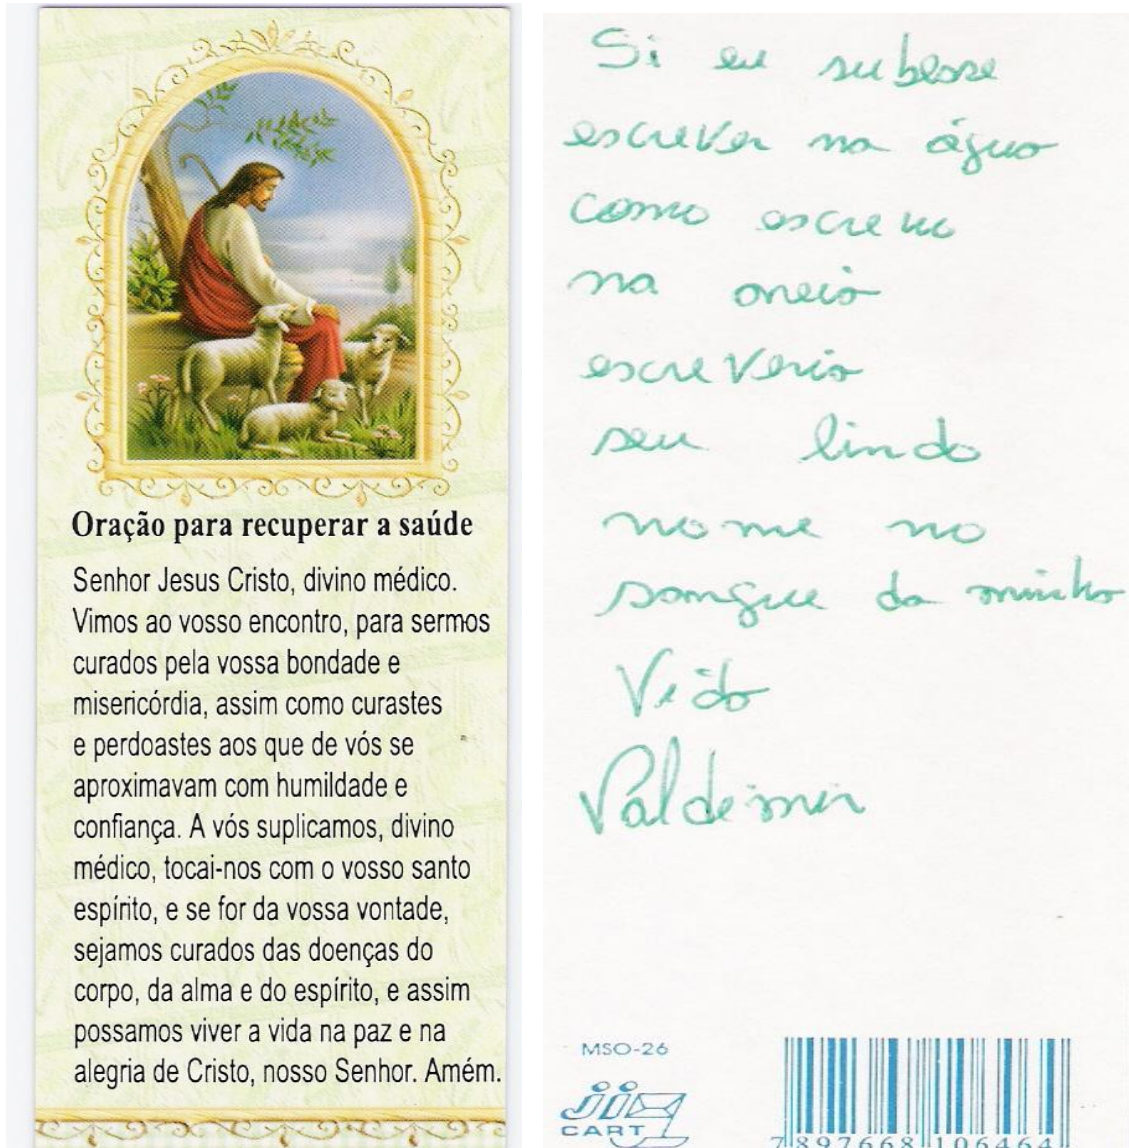 Oração para recuperar a saúde
Senhor Jesus Cristo, divino médico.
Vimos ao vosso encontro, para sermos
curados pela vossa bondade e
misericórdia, assim como curastes
e perdoastes aos que de vós se
aproximavam com humildade e
confiança. A vós suplicamos, divino
médico, tocai-nos com o vosso santo
espírito, e se for da vossa vontade,
sejamos curados das doenças do
corpo, da alma e do espírito, e assim
possamos viver a vida na paz e na
alegria de Cristo, nosso Senhor. Amém.
Si eu subesse
escrever na água
como escrevo
na areia
escreveria
seu lindo
nome no
sangue da minha
Vida
Valdemir
MSO-26
jia
CART
7 897668 106464